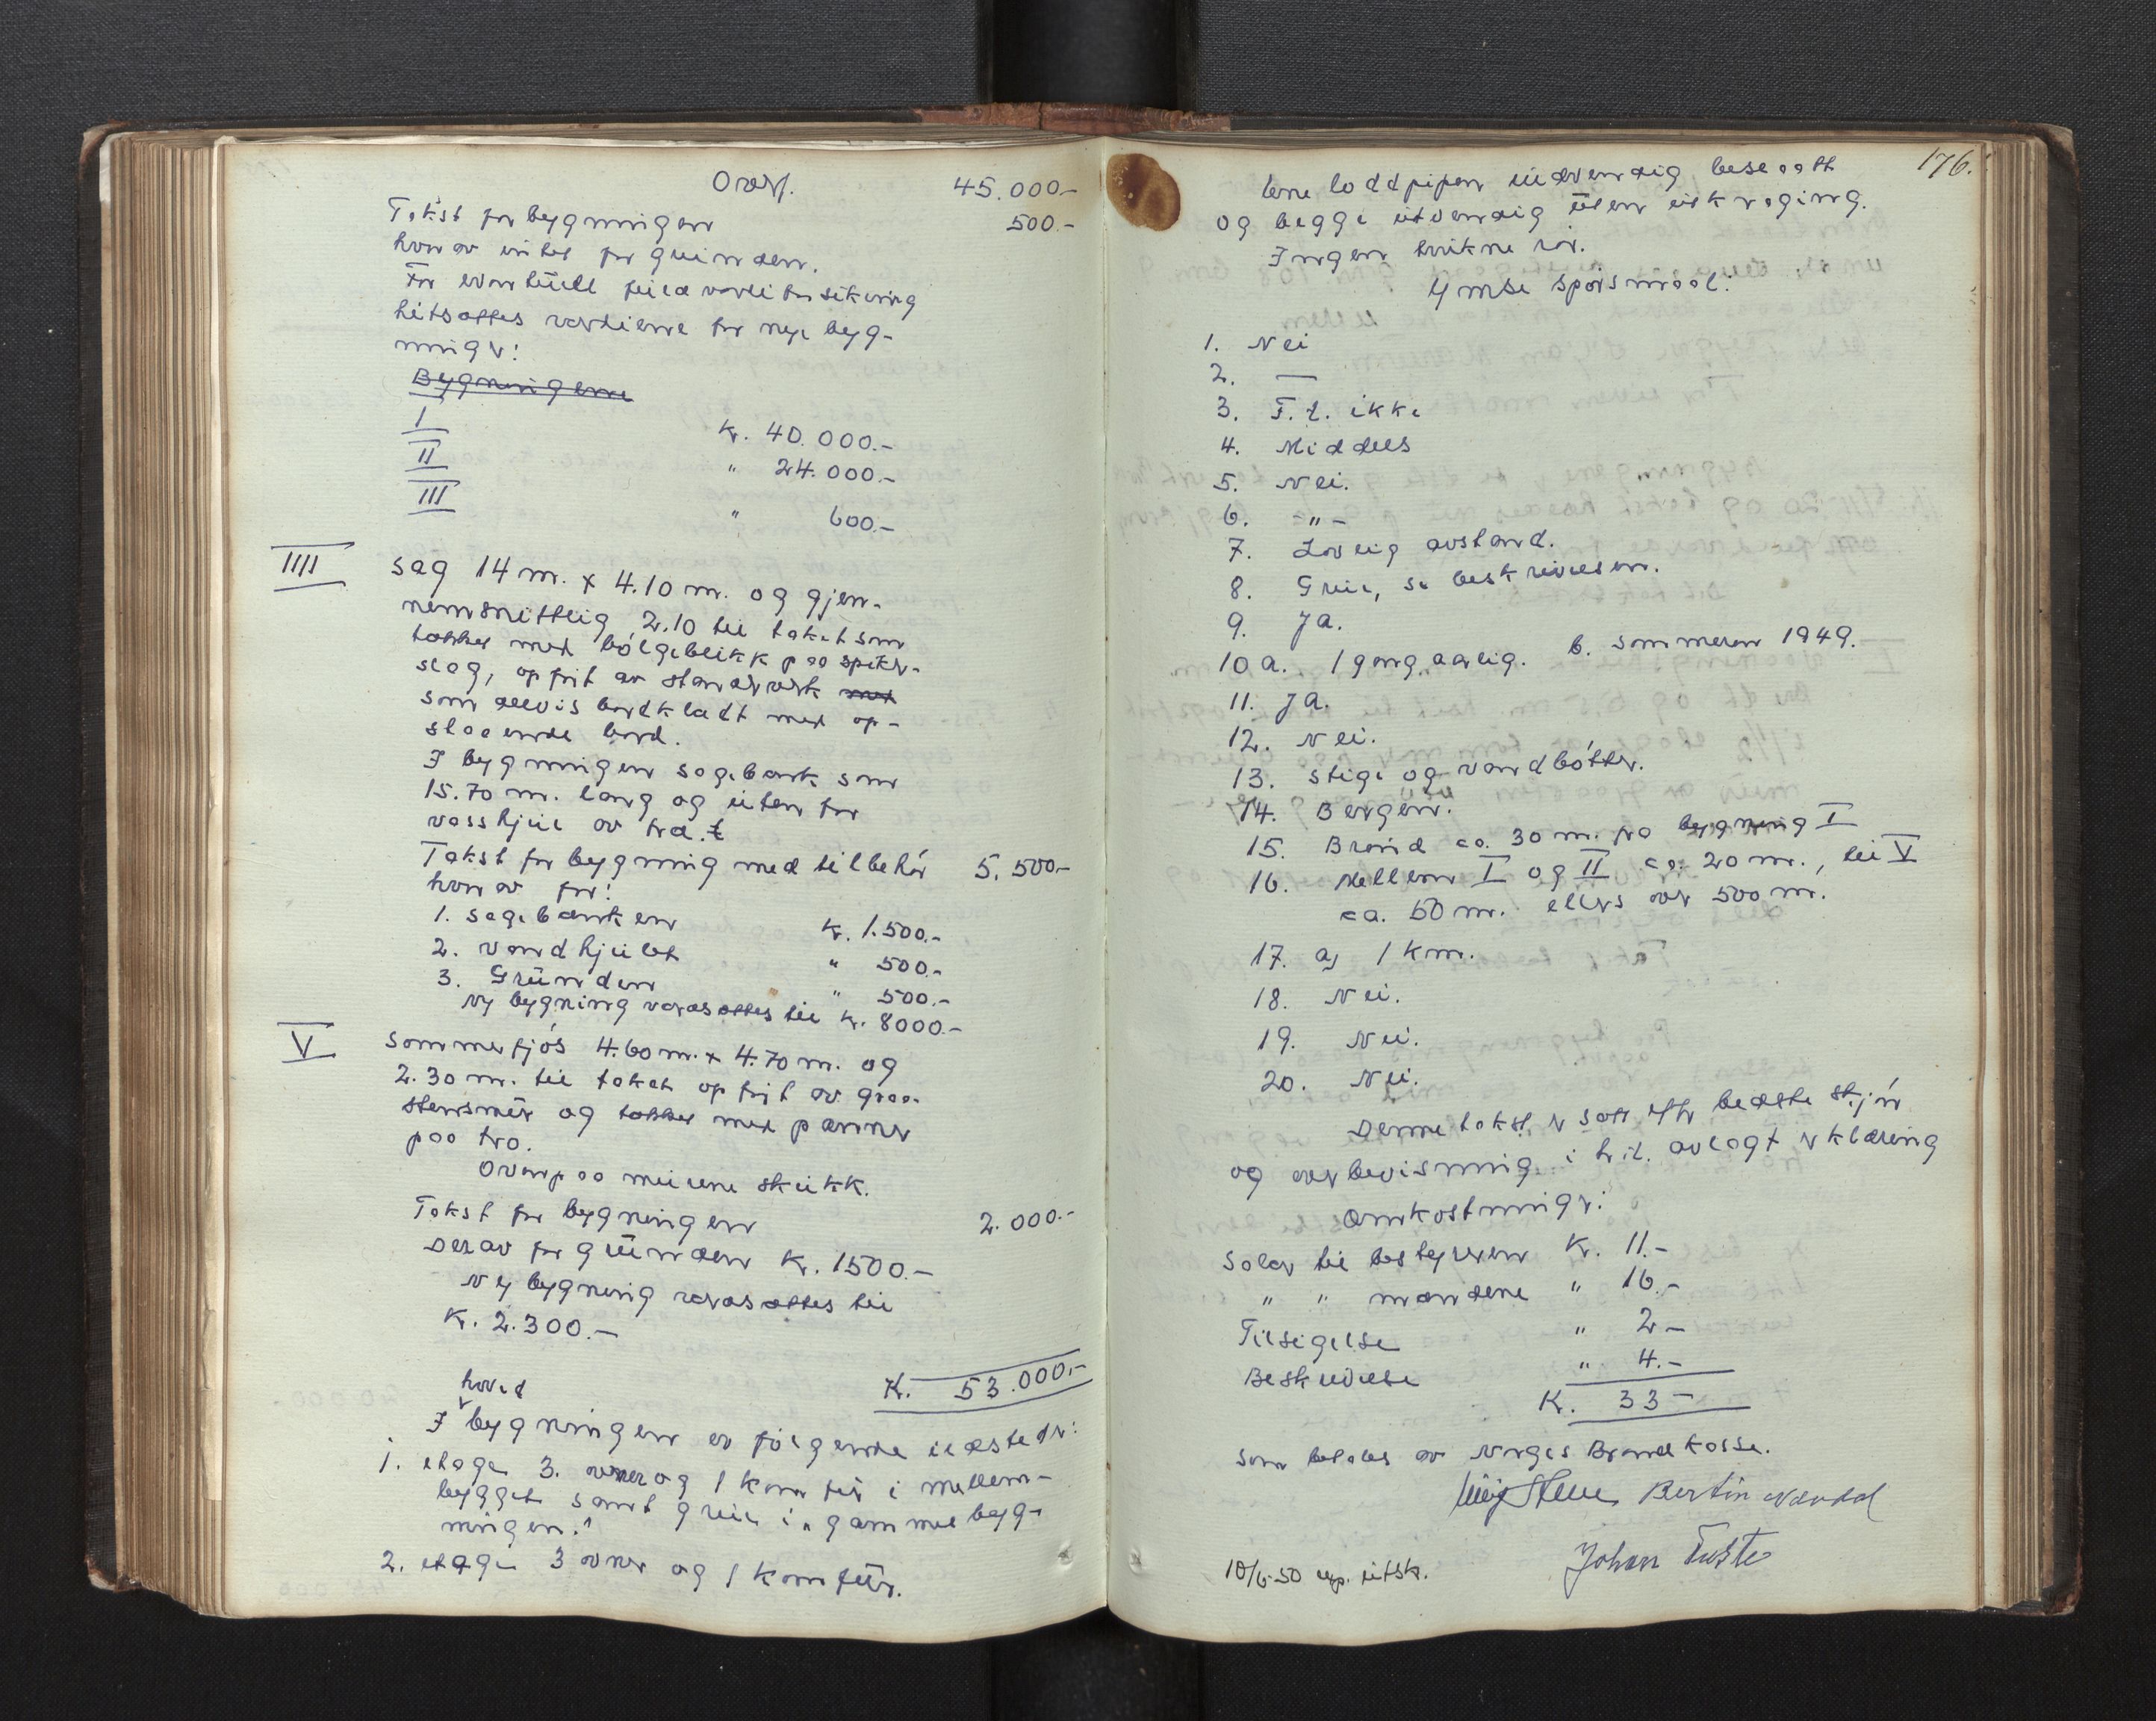 Overf. 45.000.-
Takst for bygningen 500.-
hvorav intet for grunden.
For eventuell fuldverdiforsikring
hitsættes verdiene for nye byg-
ninger:
Bygningene
I Kr. 40.000.-
II " 24.000.-
III " 600.-
IIII Sag 14 m. x 4.10 m. og gjen-
nemsnittlig 2.10 til taket som
tækket med bølgeblikk paa spiker-
slag, opført av standerverk med
som delvis bordklædt med op-
staaende bord.
I bygningen sagebænk som
15.70 m. lang og uten for
vasshjul av træ.
Takst for bygning med tilbehør 5.500-
hvorav for:
1. Sagebænken Kr. 1.500.-
2. Vandhjulet " 500.-
3. Grunden " 500.-
Ny bygning værdsættes til Kr. 8000.-
V Sommerfjøs 4.60 m. x 4.70 m. og
2.30 m. til taket opført av graa-
stensmur og tækket med panner
paa tro.
Ovenpaa murene skukk.
Takst for bygningen 2.000.-
Derav for grunden Kr. 1500.-
Ny bygning værdsættes til
Kr. 2.300.-
Kr. 53.000.-
hoved
I bygningen er følgende ildsteder:
1. etage 3. ovner og 1 komfür i mellem-
bygget samt grue i "gammelbyg-
ningen."
2. etage 3 ovner og 1 komfür.
176.
ene loddpipen indvendig beseatt
og begge utvendig uten utkraging.
Ingen trukne rør.
Ymse spørsmaal:
1. Nei
2. —
3. F. t. ikke
4. Middels
5. Nei.
6. -"-
7. Lovlig avstand.
8. Grue, se beskrivelsen.
9. Ja.
10 a. 1 gang aarlig. b. Sommeren 1949.
11. Ja.
12. Nei.
13. Stige og vandbøtter.
14. Bergen.
15. Brønd ca. 30 m. fra bygning I
16. Mellem I og II ca. 20 m., til V
ca. 50 m. ellers over 500 m.
17. a) 1 km.
18. Nei.
19. Nei.
20. Nei.
Denne takst er satt efter bedste skjøn
og overbevisning i h.t. avlagt erklæring
Omkostninger:
Salær til bestyreren Kr. 11.-
" " mændene " 16.-
Tilsigelse " 2-
Beskrivelse " 4.-
Kr. 33-
som betales av Norges Brandkasse.
Bertin
Johan
10/6-50 utsk.